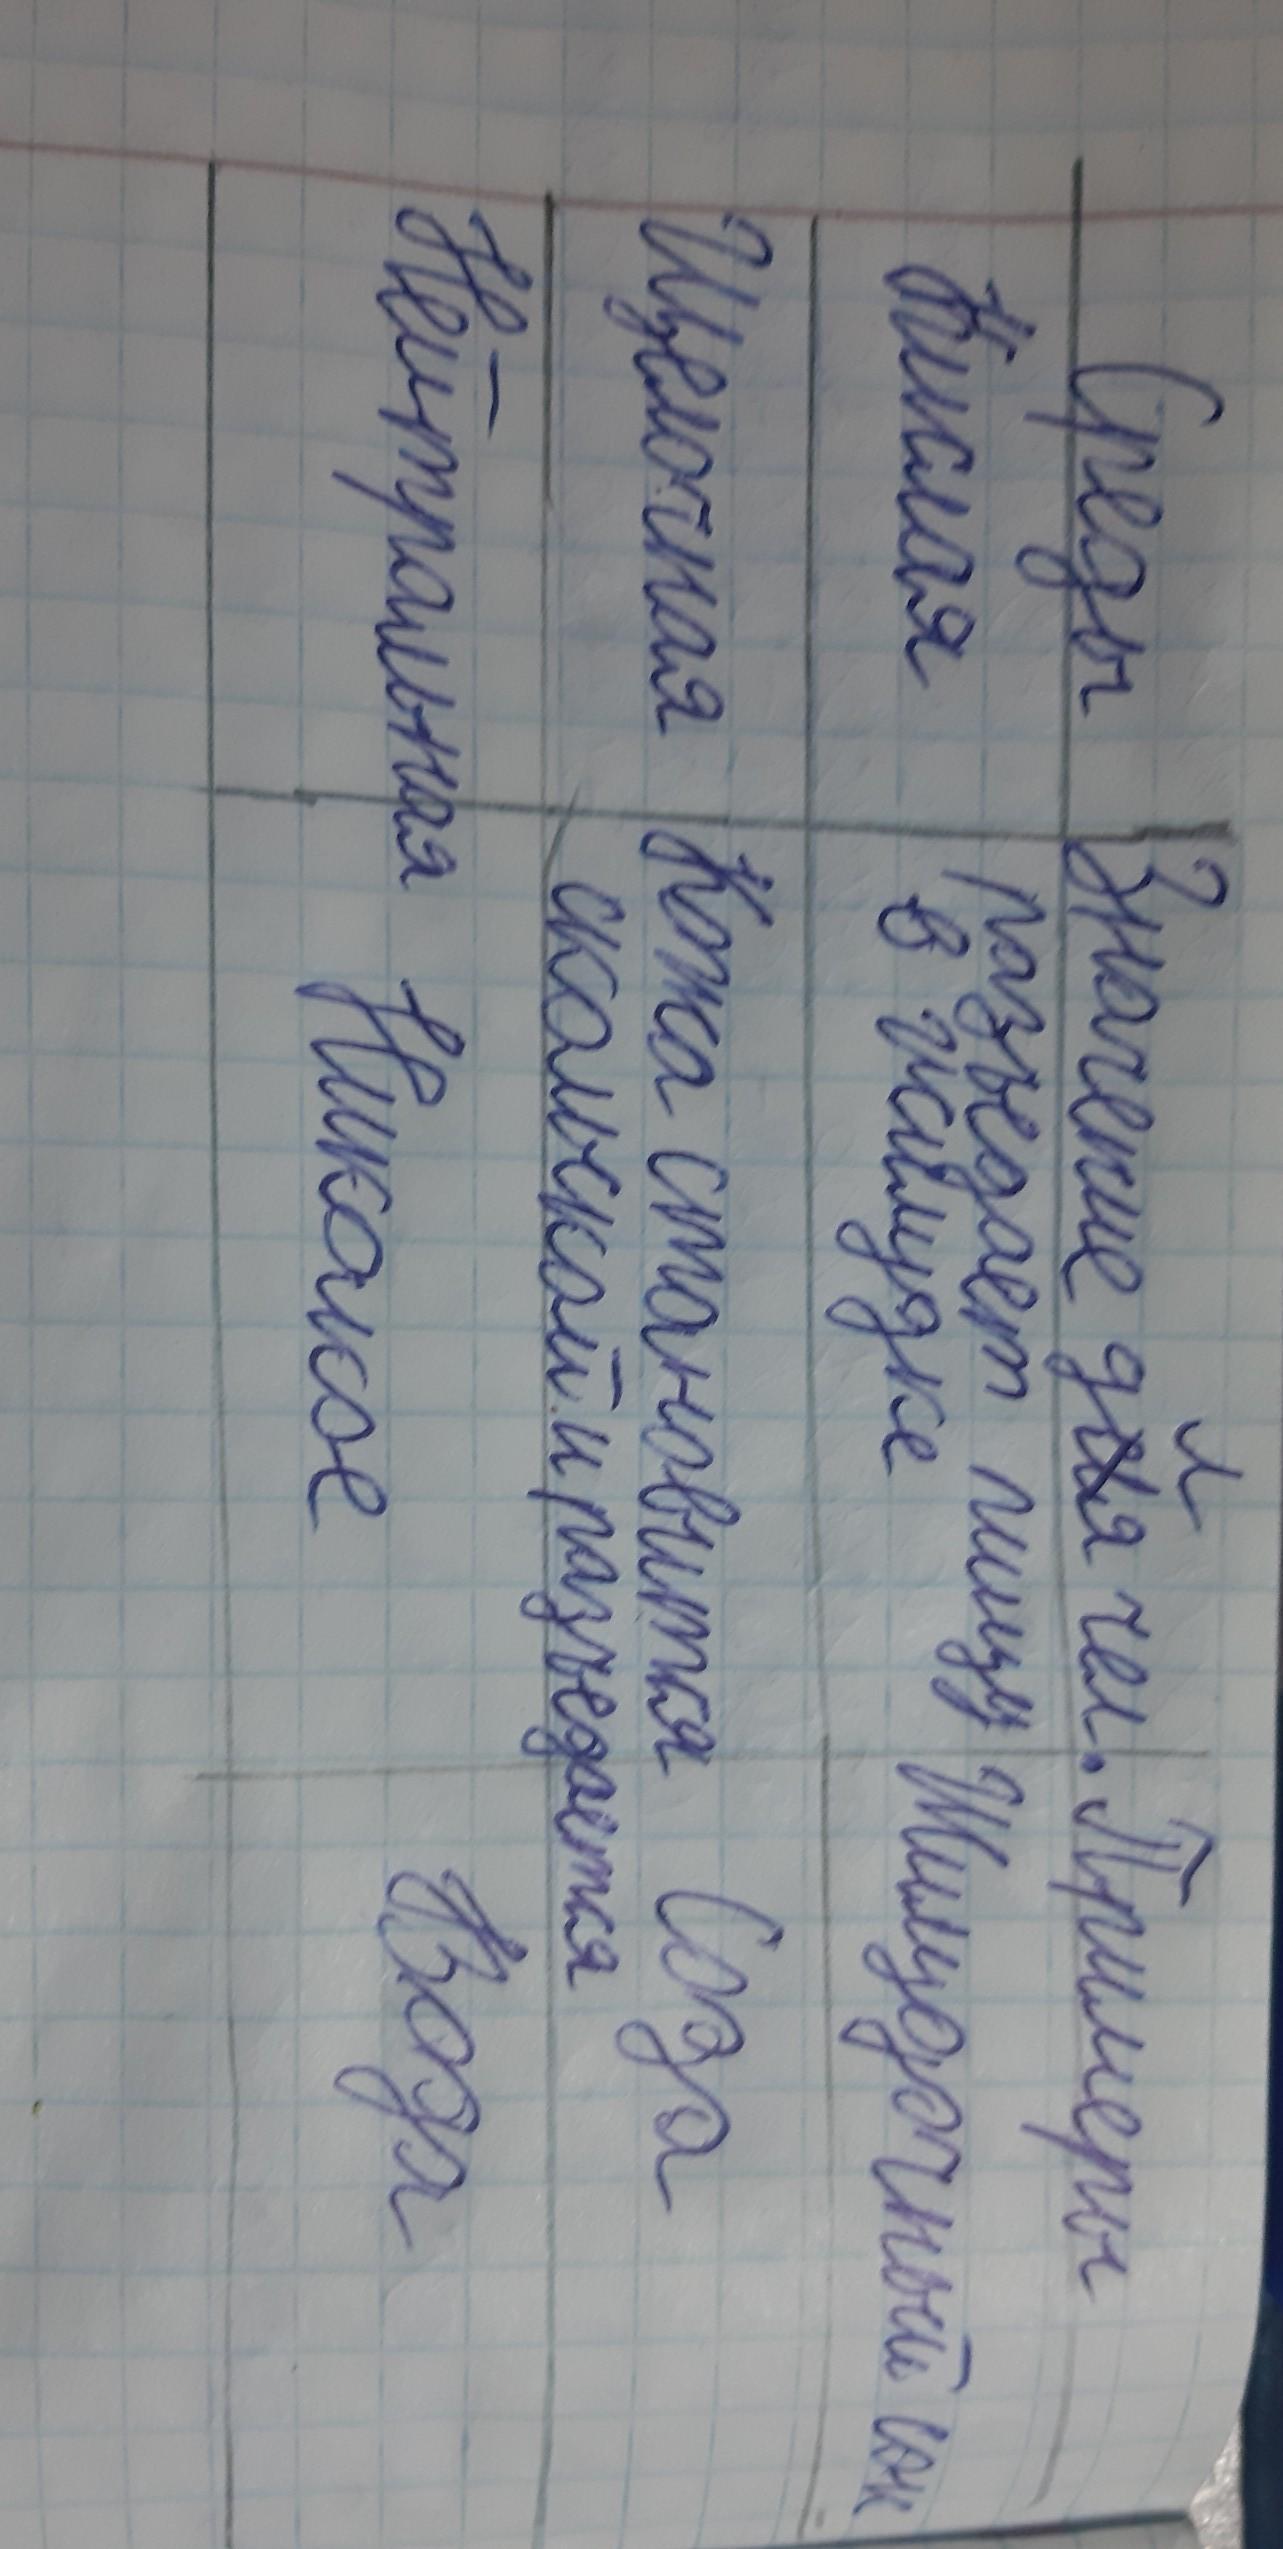 Среды Значение для чел. Примеры
Кислая разъедает пищу Жилудочный сок
в жилудке
Щелочная Кожа становится Сода
скользкой и разъедается
Нейтральная Никакое Вода